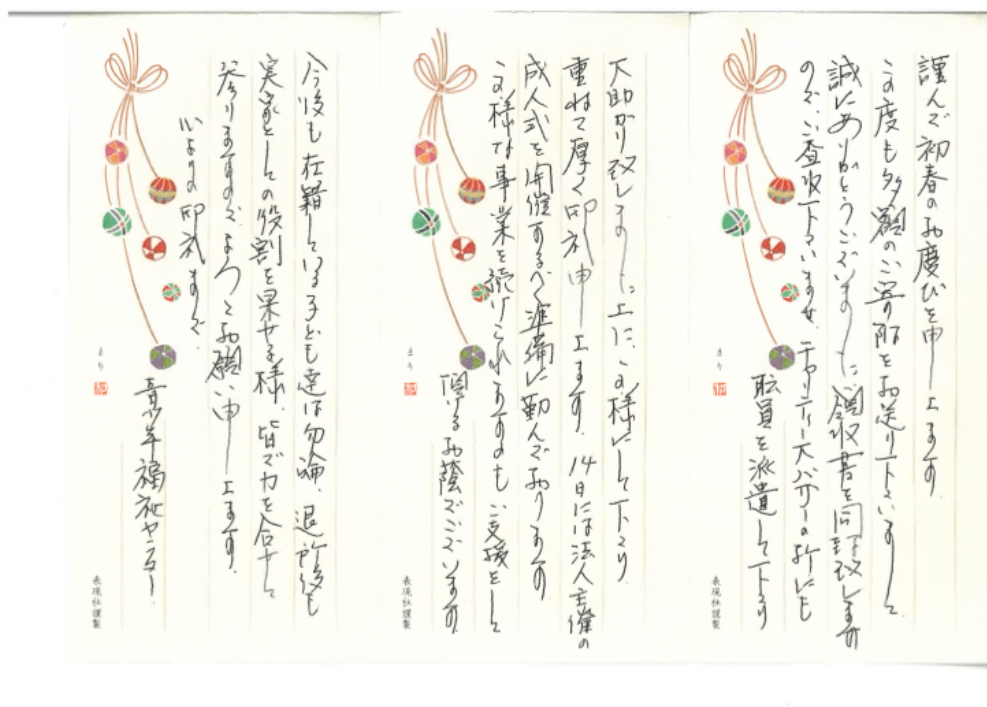 謹んで初春のお慶びを申し上ます
この度も多額のご寄附をお送り下さいまして
誠にありがとうございました。領収書を同封致します
ので、ご査収下さいませ。チャリティー大バザーの折にも
職員を派遣して下さり
まり
表現社謹製
大助かり致しました上に、この様にして下さり
重ねて厚く御礼申し上ます。14日には法人主催の
成人式を開催するべく準備に勤んでおります
この様な事業を続けこれますのも ご支援をして
頂ける お蔭でございます。
まり
表現社謹製
今後も在籍している子ども達は勿論、退所後も
実家としての役割を果せる様、皆で力を合せて
参りますので よろしくお願い申し上ます。
心より御礼まで。
青少年福祉センター
まり
表現社謹製